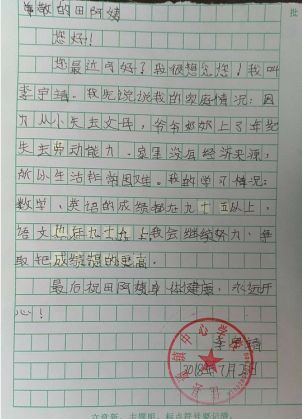 尊敬的田阿姨
您好!!
您最近可好了!我很想见您!我叫
李宇婧。我先说说我的家庭情况:因
为从小失去父母,爷爷奶奶上了年纪
失去劳动能力,家里没有经济来源,
所以生活非常困难。我的学习情况:
数学、英语的成绩都在九十五以上,
语文也在九十左上我会继续努力,争
取把成绩提的更高。
最后祝田阿姨身体健康,永远开
心!
镇中心学
李宇婧
2018年7月2日